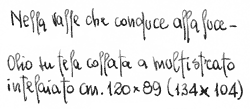 Nella valle che conduce alla luce -
Olio su tela collata a multistrato
intelaiato cm. 120 x 89 (134 x 104)